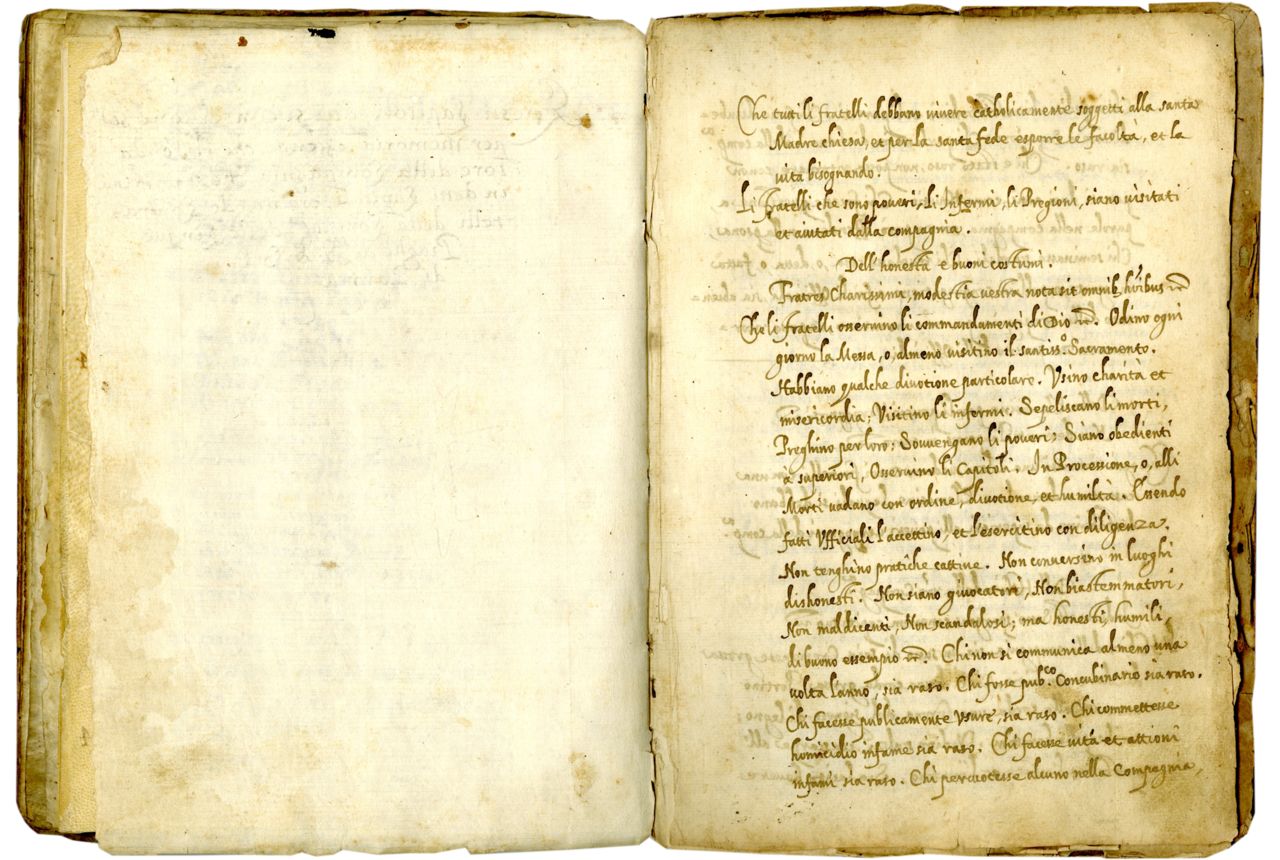 Che tutti li fratelli debbano vivere catholicamente soggetti alla santa
Madre chiesa, et per la santa fede esporre le facoltà, et la
vita bisognando.
Li Fratelli che sono poveri, Li Infermi, li Pregioni, siano visitati
et aiutati dalla compagnia.
Dell'honestà e buoni costumi.
Fratres Charissimi, modestia vestra nota sit omnib. hoîbus etc
Che li fratelli osservino li commandamenti di Dio etc. Odino ogni
giorno la Messa, o, almeno visitino il santiss.o Sacramento.
Habbiano qualche divotione particolare. Usino charità et
misericordia; Visitino li infermi. Sepeliscano li morti,
Preghino per loro: Sovvengano li poveri: Siano obedienti
à superiori, Osservino li Capitoli. In Processione, o, alli
Morti vadano con ordine, divotione, et humiltà. Essendo
fatti Ufficiali l'accettino, et l'esercitino con diligenza.
Non tenghino pratiche cattive. Non conversino in luoghi
dishonesti. Non siano giuocatori, Non biastemmatori,
Non maldicenti, Non scandalosi; ma honesti, humili,
di buono essempio etc. Chi non si communica almeno una
volta l'anno, sia raso. Chi fosse pub.co Concubinario sia raso.
Chi facesse publicamente Usure, sia raso. Chi commettesse
homicidio infame sia raso. Chi facesse vita et attioni
infami sia raso. Chi percuotesse alcuno nella Compagnia,